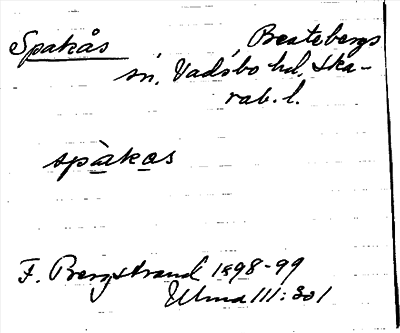 Spakås Beatebergs
sn, Vadsbo hd, Ska-
rab. l.
spàkos
F. Bergstrand 1898-99
Ulma 111:301